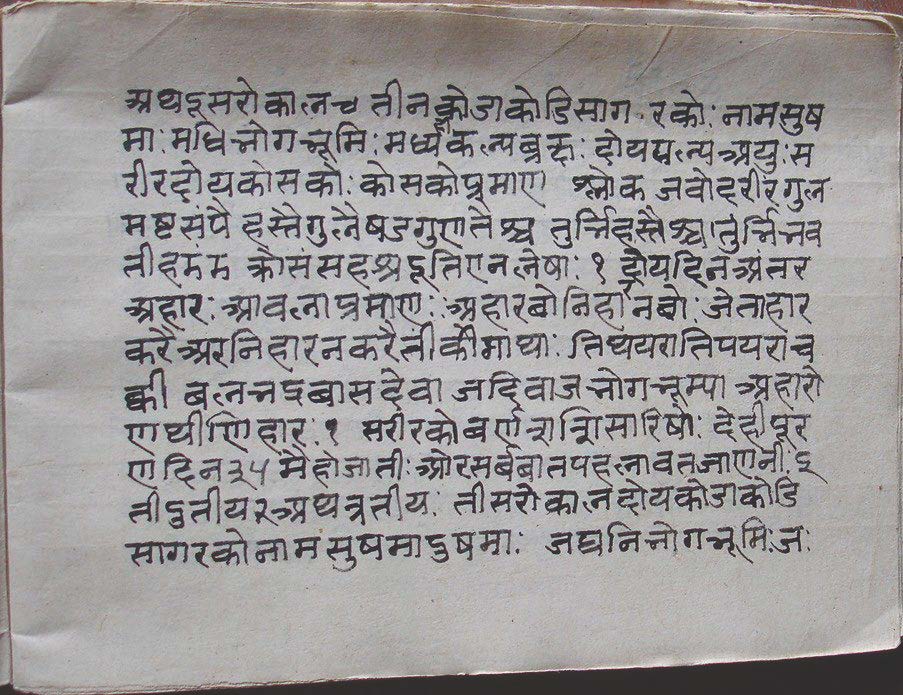 अथ दूसरो काल च तीन कोडाकोडि साग रको: नाम सुष
मा: मधि भोगभूमि: मध्यै कल्पब्रक्ष: दोय पल्य आयु: स
रीर दोय कोस को: कोस को प्रमाण श्लोक जवोदरीरंगुल
मष्ट संपै हस्तो गुलै षडगुण तैश्च तुर्भिहस्तैश्च तुर्भिभव
तीह कोसं सहश्र १ दोय दिन अंतर
अहार: आवला प्रमाण: अहार बो निर्हानबो: जेता हार
करै अर निहार न करै तीकी गाथा: तिथयरा तिपयरा च
क्की बल वासदेवा जदिवा ज भोगभूम्या अहारो
णथी णिहार: १ सरीर को बर्ण सारिषो: देही पूर
ण दिन ३५ मै हो जाती: ओर सर्ब बात पहला वत जाणनी: इ
ती दुतीय २ अथ त्रतीय: तीसरो काल दोय कोडाकोडि
सागर को नाम सुषमा दुषमा: जघनि भोगभूमि: ज: